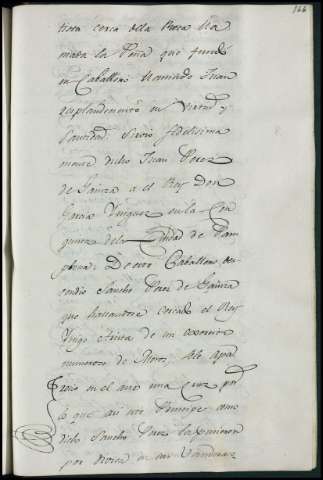 166
tiera cerca dela Pena lla
mada la Peña que fundó
un Caballero llamado Juan
resplandeciente en Virtud y
Santidad. Sirvio fidelisima
mente dicho Juan Perez
de Sainza a el Rey Don
Garcia Yñiguez en la Con
quista dela Ciudad de Pam
plona: De este Caballero des
cendio Sancho Perez de Sainza
que hallandose cercado el Rey
Yñigo Arista de un exercito
numeroso de Moros, se le apa
recio en el aire una Cruz por
lo que asi este Principe como
dicho Sancho Perez la pusieron
por Divisa de sus Vanderas